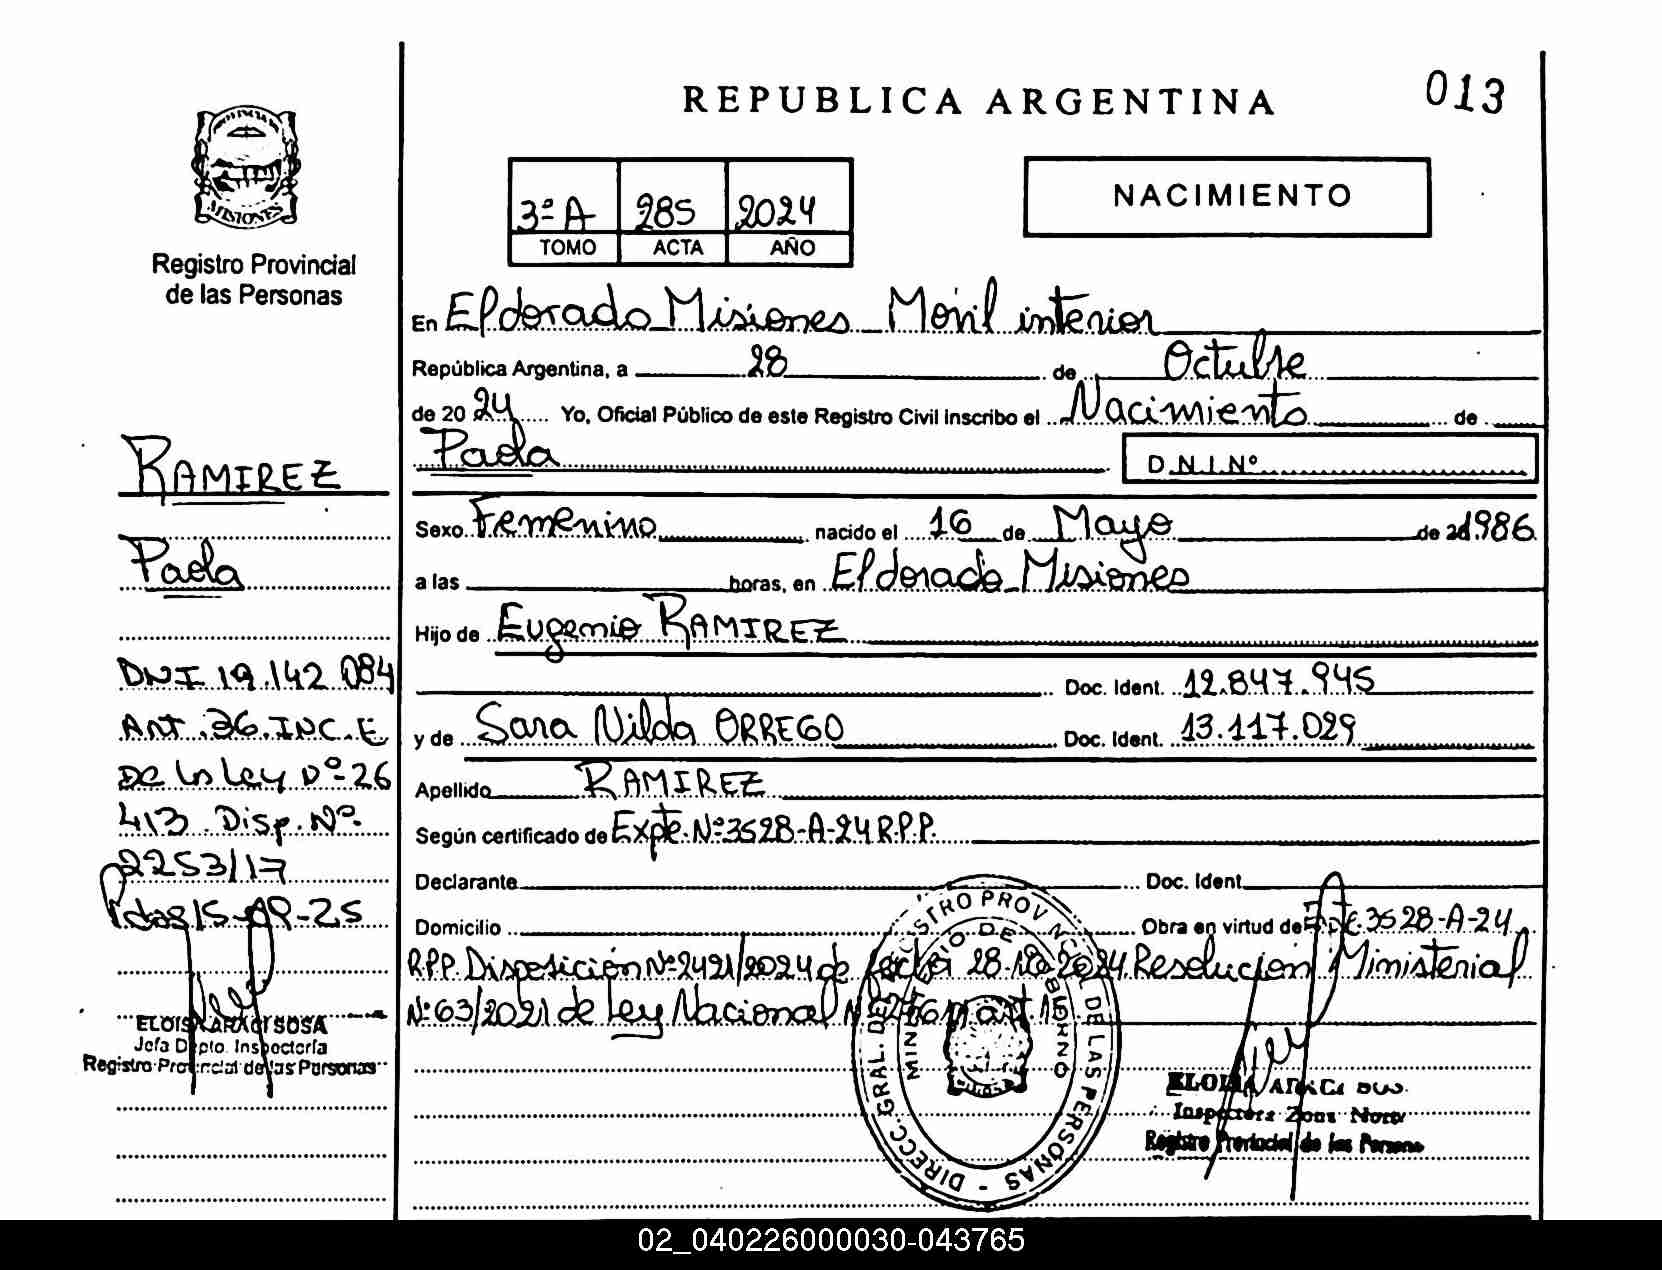 REPUBLICA ARGENTINA
013
MISIONES
Registro Provincial
de las Personas
3º A 285 2024
TOMO ACTA AÑO
NACIMIENTO
En Eldorado Misiones Móvil interior
República Argentina, a 28 de Octubre
de 20 24 Yo, Oficial Público de este Registro Civil inscribo el Nacimiento de
Paola D.N.I.Nº
Sexo Femenino nacido el 16 de Mayo de 1986
a las horas, en Eldorado Misiones
Hijo de Eugenio RAMIREZ
Doc. Ident. 12.847.945
y de Sara Nilda ORREGO Doc. Ident. 13.117.029
Apellido RAMIREZ
Según certificado de Expte. Nº 3528-A-24 R.P.P.
Declarante Doc. Ident.
Domicilio Obra en virtud de 3528-A-24
R.P.P. Disposición Nº 2421/2024 de fecha 28-10-2024 Resolución Ministerial
Nº 63/2021 de Ley Nacional
RAMIREZ
Paola
DNI 19.142.084
ART. 36. INC. E
De la Ley Nº 26
413. Disp. Nº
2253/17
Pdas 15-09-25
ELOISA ARACI SOSA
Jefa Dpto. Inspectoría
Registro Provincial de las Personas
DIRECC. GRAL. DE REGISTRO PROVINCIAL DE LAS PERSONAS -
MINISTERIO DE GOBIERNO
ELOISA ARACI
Inspectora Zona Norte
Registro Provincial de las Personas
02_040226000030-043765